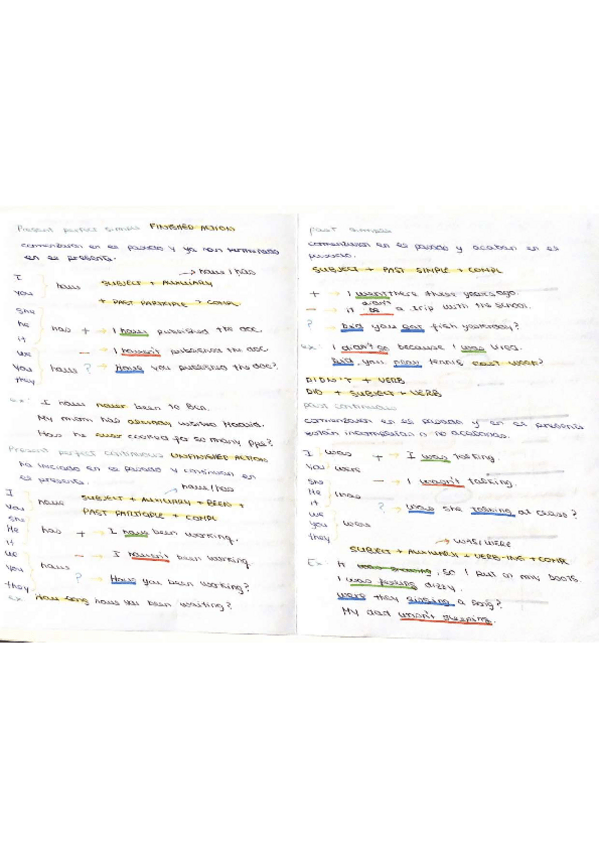 Present perfect simple FINISHED ACTIONS
comenzaron en el pasado y ya han terminado
en el presente.
→ have / has
I
You have SUBJECT + AUXILIARY
+ PAST PARTICIPLE + COMPL.
She
he has + → I have published the doc.
it
we - → I haven't published the doc
You have ? → Have you published the doc?
they
Ex: I have never been to Bcn.
My mum has already visited Madrid.
Has he ever cooked for so many ppl?
Present perfect continuous UNFINISHED ACTIONS
ha iniciado en el pasado y continuan en
el presente.
→ have/has
I
You have SUBJECT + AUXILIARY + BEEN +
PAST PARTICIPLE + COMPL
She
He has + → I have been working.
It
we - → I haven't been working
You have
? → Have you been working?
they
Ex: How long have you been waiting?
past simple
comenzaron en el pasado y acaban en el
pasado.
SUBJECT + PAST SIMPLE + COMPL
+ → I went there three years ago.
- → I didn't a trip with the school.
? → Did you eat fish yesterday?
Ex: I didn't go because I was tired.
Did you play tennis last week?
DIDN'T + VERB
DID + SUBJECT + VERB
past continuous
comenzaron en el pasado y en el presente
están incompletas o no acabadas.
I was + → I was talking
You were
She - → I wasn't talking.
He was
it ? → was she talking at class?
we
you were
they → was/were
SUBJECT + AUXILIARY + VERB-ING + COMPL
Ex: It was snowing, so I put on my boots.
I was feeling dizzy.
were they singing a song?
My dad wasn't sleeping.